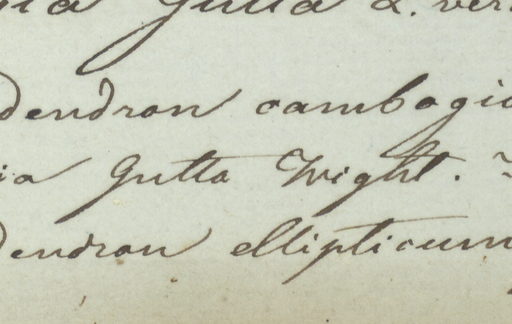 Gutta L. ver
dendron cambogi
ia Gutta Wight.
dendron ellipticum